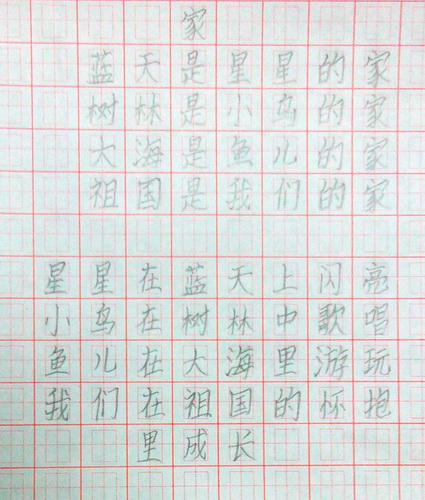 家
蓝天是星星的家
树林是小鸟的家
大海是鱼儿的家
祖国是我们的家
星星在蓝天上闪亮
小鸟在树林中歌唱
鱼儿在大海里游玩
我们在祖国的怀抱
里成长